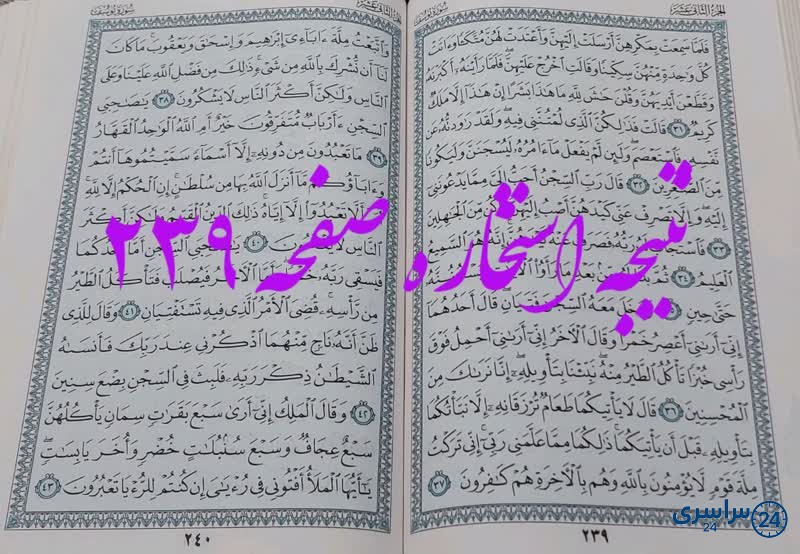 الجزء الثاني عشر
سورة يوسف
فَلَمَّا سَمِعَتْ بِمَكْرِهِنَّ أَرْسَلَتْ إِلَيْهِنَّ وَأَعْتَدَتْ لَهُنَّ مُتَّكَـًٔا وَءَاتَتْ
كُلَّ وَٰحِدَةٍ مِّنْهُنَّ سِكِّينًا وَقَالَتِ ٱخْرُجْ عَلَيْهِنَّ فَلَمَّا رَأَيْنَهُۥٓ أَكْبَرْنَهُۥ
وَقَطَّعْنَ أَيْدِيَهُنَّ وَقُلْنَ حَٰشَ لِلَّهِ مَا هَٰذَا بَشَرًا إِنْ هَٰذَآ إِلَّا مَلَكٌ
كَرِيمٌ ٣١ قَالَتْ فَذَٰلِكُنَّ ٱلَّذِى لُمْتُنَّنِى فِيهِ وَلَقَدْ رَٰوَدتُّهُۥ عَن
نَّفْسِهِۦ فَٱسْتَعْصَمَ وَلَئِن لَّمْ يَفْعَلْ مَآ ءَامُرُهُۥ لَيُسْجَنَنَّ وَلَيَكُونًا
مِّنَ ٱلصَّٰغِرِينَ ٣٢ قَالَ رَبِّ ٱلسِّجْنُ أَحَبُّ إِلَىَّ مِمَّا يَدْعُونَنِىٓ
إِلَيْهِ وَإِلَّا تَصْرِفْ عَنِّى كَيْدَهُنَّ أَصْبُ إِلَيْهِنَّ وَأَكُن مِّنَ ٱلْجَٰهِلِينَ
٣٣ فَٱسْتَجَابَ لَهُۥ رَبُّهُۥ فَصَرَفَ عَنْهُ كَيْدَهُنَّ إِنَّهُۥ هُوَ ٱلسَّمِيعُ
ٱلْعَلِيمُ ٣٤ ثُمَّ بَدَا لَهُم مِّنۢ بَعْدِ مَا رَأَوُا۟ ٱلْـَٔايَٰتِ لَيَسْجُنُنَّهُۥ
حَتَّىٰ حِينٍ ٣٥ وَدَخَلَ مَعَهُ ٱلسِّجْنَ فَتَيَانِ قَالَ أَحَدُهُمَآ
إِنِّىٓ أَرَىٰنِىٓ أَعْصِرُ خَمْرًا وَقَالَ ٱلْـَٔاخَرُ إِنِّىٓ أَرَىٰنِىٓ أَحْمِلُ فَوْقَ
رَأْسِى خُبْزًا تَأْكُلُ ٱلطَّيْرُ مِنْهُ نَبِّئْنَا بِتَأْوِيلِهِۦٓ إِنَّا نَرَىٰكَ مِنَ
ٱلْمُحْسِنِينَ ٣٦ قَالَ لَا يَأْتِيكُمَا طَعَامٌ تُرْزَقَانِهِۦٓ إِلَّا نَبَّأْتُكُمَا
بِتَأْوِيلِهِۦ قَبْلَ أَن يَأْتِيَكُمَا ذَٰلِكُمَا مِمَّا عَلَّمَنِى رَبِّىٓ إِنِّى تَرَكْتُ
مِلَّةَ قَوْمٍ لَّا يُؤْمِنُونَ بِٱللَّهِ وَهُم بِٱلْـَٔاخِرَةِ هُمْ كَٰفِرُونَ ٣٧
٢٣٩
الجزء الثاني عشر
سورة يوسف
وَٱتَّبَعْتُ مِلَّةَ ءَابَآءِىٓ إِبْرَٰهِيمَ وَإِسْحَٰقَ وَيَعْقُوبَ مَا كَانَ
لَنَآ أَن نُّشْرِكَ بِٱللَّهِ مِن شَىْءٍ ذَٰلِكَ مِن فَضْلِ ٱللَّهِ عَلَيْنَا وَعَلَى
ٱلنَّاسِ وَلَٰكِنَّ أَكْثَرَ ٱلنَّاسِ لَا يَشْكُرُونَ ٣٨ يَٰصَٰحِبَىِ
ٱلسِّجْنِ ءَأَرْبَابٌ مُّتَفَرِّقُونَ خَيْرٌ أَمِ ٱللَّهُ ٱلْوَٰحِدُ ٱلْقَهَّارُ
٣٩ مَا تَعْبُدُونَ مِن دُونِهِۦٓ إِلَّآ أَسْمَآءً سَمَّيْتُمُوهَآ أَنتُمْ
وَءَابَآؤُكُم مَّآ أَنزَلَ ٱللَّهُ بِهَا مِن سُلْطَٰنٍ إِنِ ٱلْحُكْمُ إِلَّا لِلَّهِ
أَمَرَ أَلَّا تَعْبُدُوٓا۟ إِلَّآ إِيَّاهُ ذَٰلِكَ ٱلدِّينُ ٱلْقَيِّمُ وَلَٰكِنَّ أَكْثَرَ
ٱلنَّاسِ لَا يَعْلَمُونَ ٤٠ يَٰصَٰحِبَىِ ٱلسِّجْنِ أَمَّآ أَحَدُكُمَا
فَيَسْقِى رَبَّهُۥ خَمْرًا وَأَمَّا ٱلْـَٔاخَرُ فَيُصْلَبُ فَتَأْكُلُ ٱلطَّيْرُ
مِن رَّأْسِهِۦ قُضِىَ ٱلْأَمْرُ ٱلَّذِى فِيهِ تَسْتَفْتِيَانِ ٤١ وَقَالَ لِلَّذِى
ظَنَّ أَنَّهُۥ نَاجٍ مِّنْهُمَا ٱذْكُرْنِى عِندَ رَبِّكَ فَأَنسَىٰهُ
ٱلشَّيْطَٰنُ ذِكْرَ رَبِّهِۦ فَلَبِثَ فِى ٱلسِّجْنِ بِضْعَ سِنِينَ
٤٢ وَقَالَ ٱلْمَلِكُ إِنِّىٓ أَرَىٰ سَبْعَ بَقَرَٰتٍ سِمَانٍ يَأْكُلُهُنَّ
سَبْعٌ عِجَافٌ وَسَبْعَ سُنۢبُلَٰتٍ خُضْرٍ وَأُخَرَ يَابِسَٰتٍ
يَٰٓأَيُّهَا ٱلْمَلَأُ أَفْتُونِى فِى رُءْيَٰىَ إِن كُنتُمْ لِلرُّءْيَا تَعْبُرُونَ ٤٣
٢٤٠
نتیجه استخاره صفحه ۲۳۹
سراسری 24
24